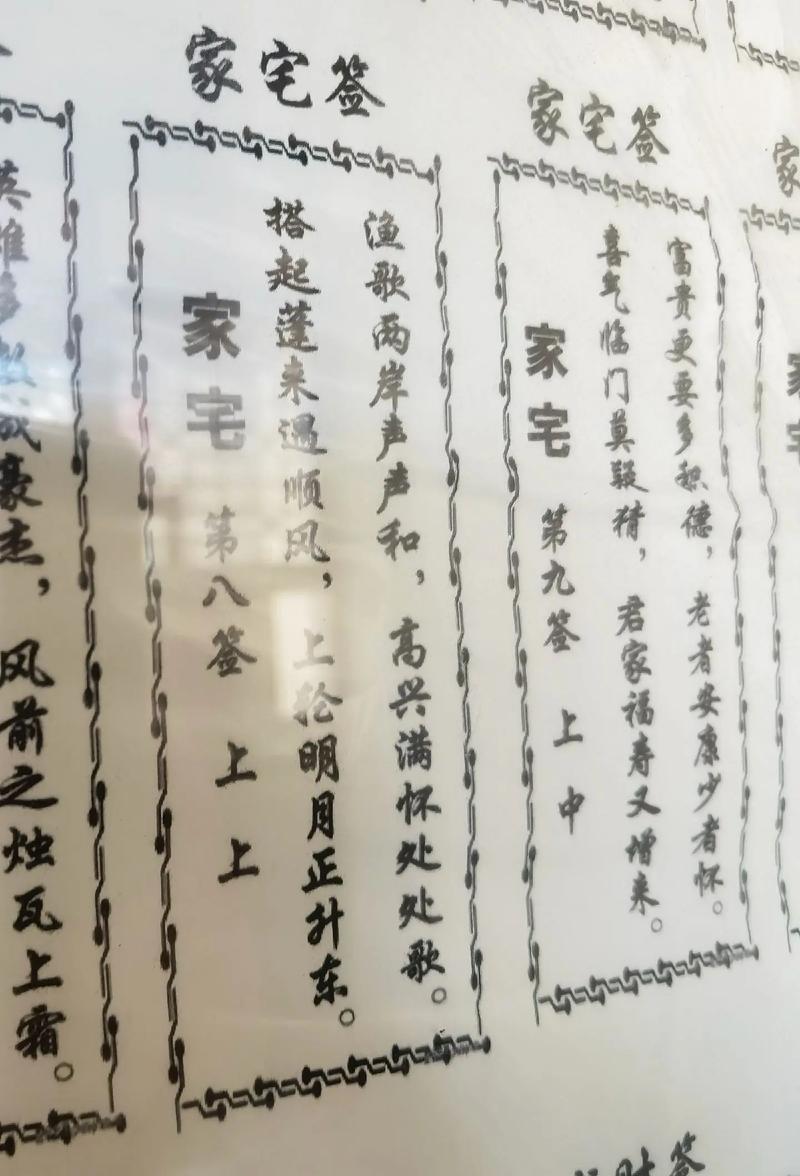 英雄多数成豪杰，风前之烛瓦上霜。
家宅签
家宅 第八签 上上
搭起蓬来遇顺风，上轮明月正升东。
渔歌两岸声声和，高兴满怀处处歌。
家宅签
家宅 第九签 上中
喜气临门莫疑猜，君家福寿又增来。
富贵更要多积德，老者安康少者怀。
家
家宅
财签